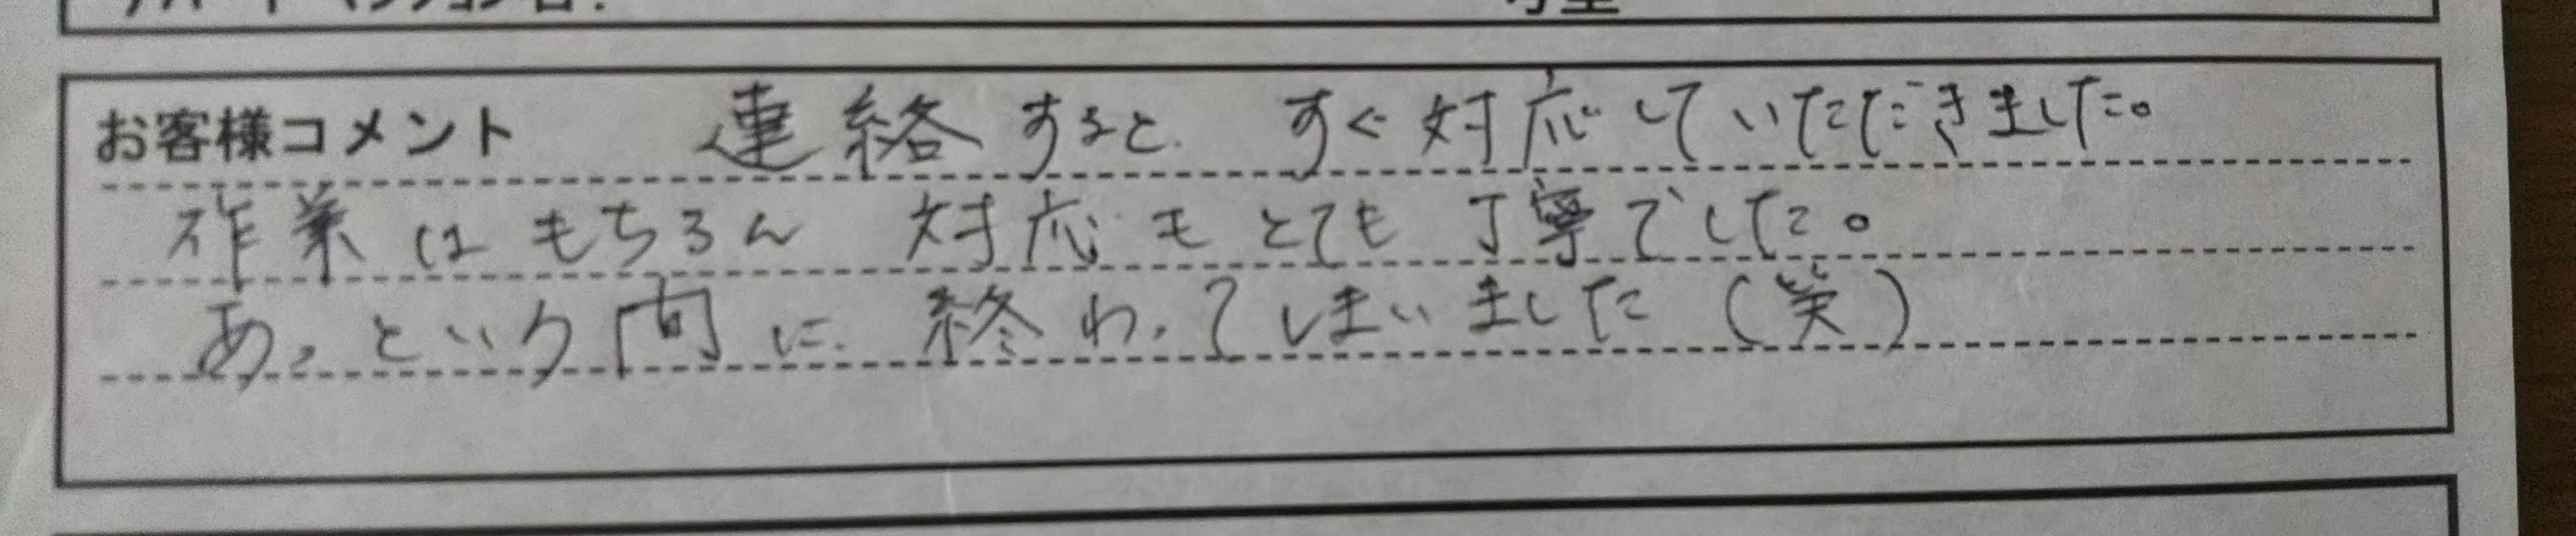 お客様コメント 連絡すると すぐ対応していただきました。
作業はもちろん 対応もとても丁寧でした。
あっという間に 終わってしまいました(笑)